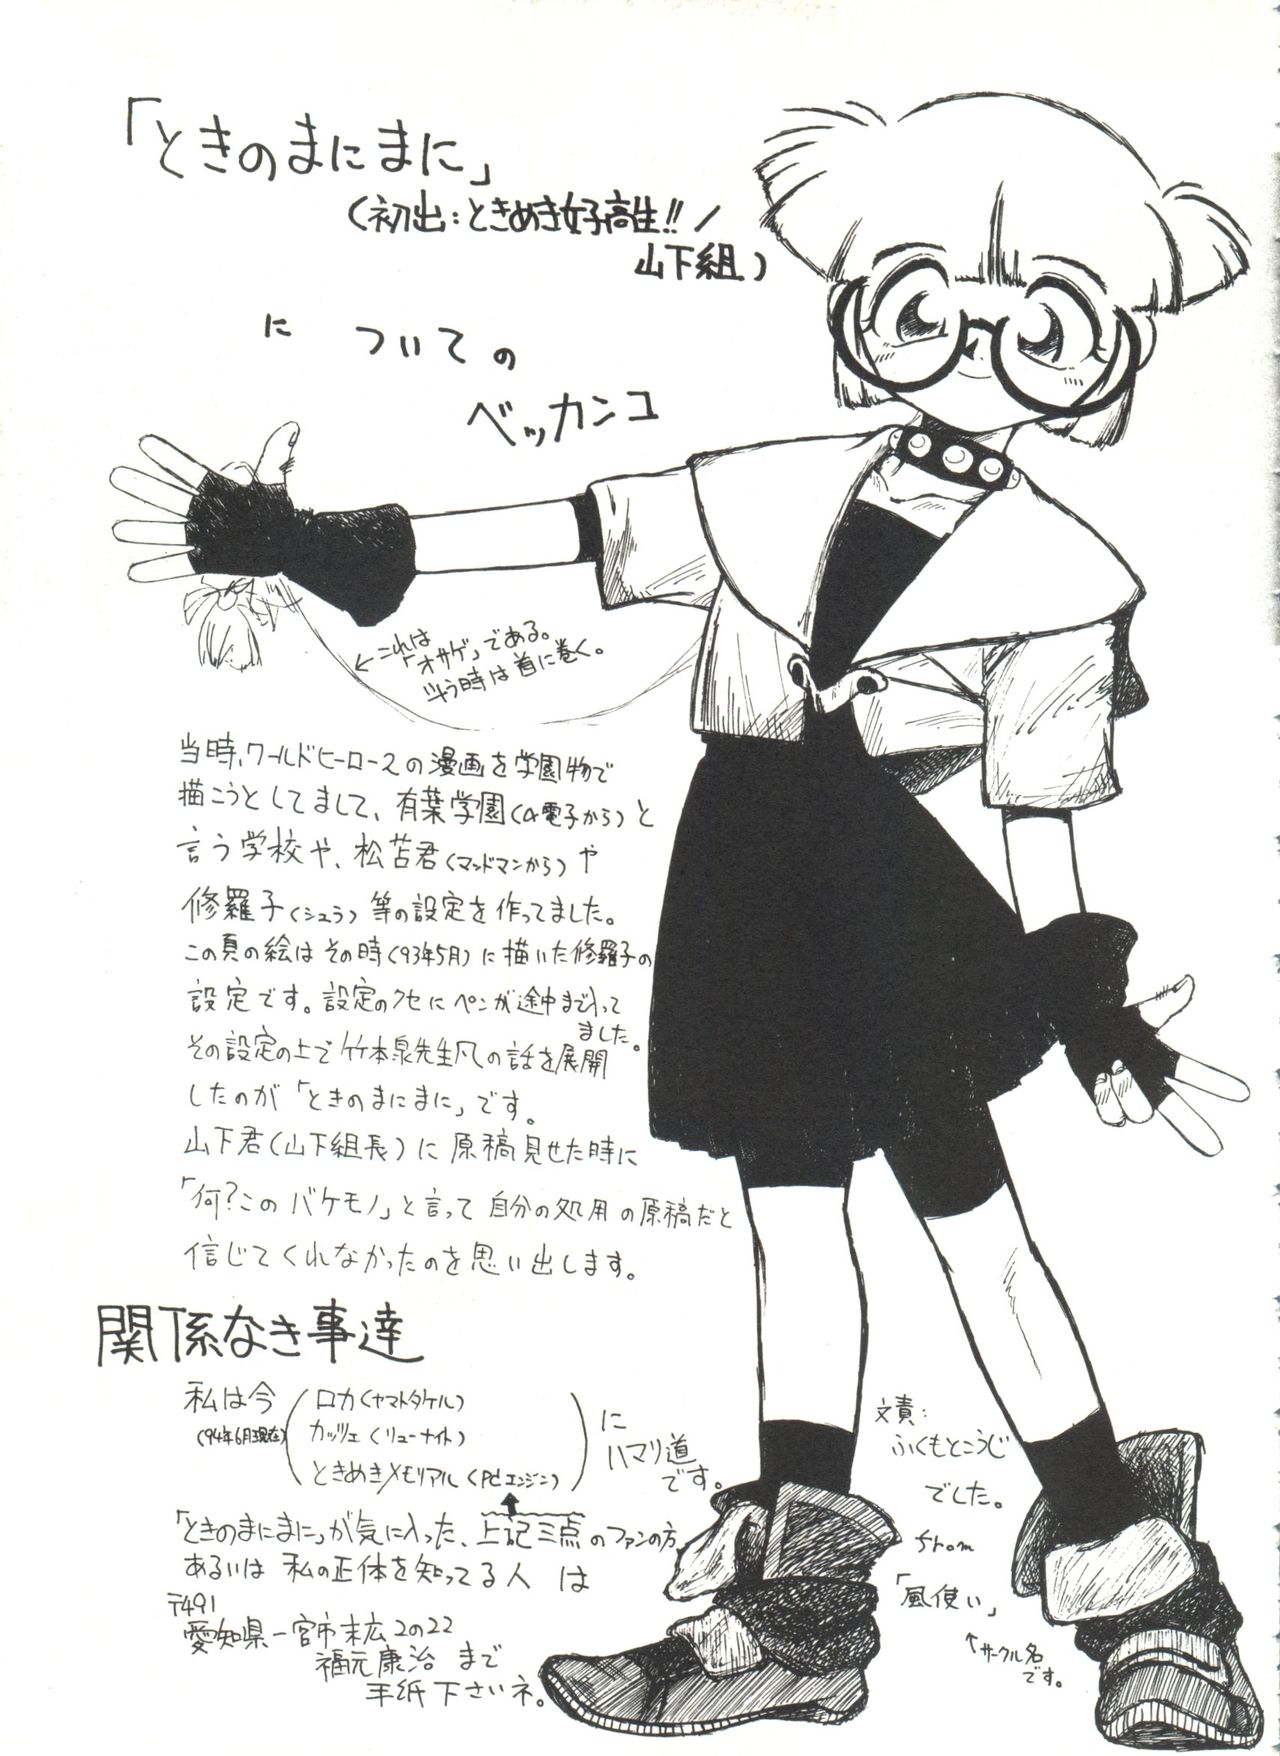 「ときのまにまに」
(初出：ときめき好子高生!!/
山下組)
に ついての
ベッカンコ
←これは
「オサゲ」である。
斗う時は首に巻く。
当時、ワールドヒーロースの漫画を学園物で
描こうとしてまして、有葉学園(α電子から)と
言う学校や、松苫君(マッドマンから)や
修羅子(シュラ)等の設定を作ってました。
この頁の絵はその時('93年5月)に描いた修羅子の
設定です。設定のクセにペンが途中まで入って
ました。
その設定の上で竹本泉先生風の話を展開
したのが「ときのまにまに」です。
山下君(山下組長)に原稿見せた時に
「何?このバケモノ」と言って自分の処用の原稿だと
信じてくれなかったのを思い出します。
関係なき事達
私は今
('94年6月現在)
ロカ(ヤマトタケル)
カッツェ(リューナイト)
ときめきメモリアル(PCエンジン)
に
ハマリ道
です。
「ときのまにまに」が気に入った、上記三点のファンの方、
あるいは私の正体を知ってる人は
〒491
愛知県一宮市末広2の22
福元康治まで
手紙下さいネ。
文責：
ふくもとこうじ
でした。
from
「風使い」
↑サークル名
です。